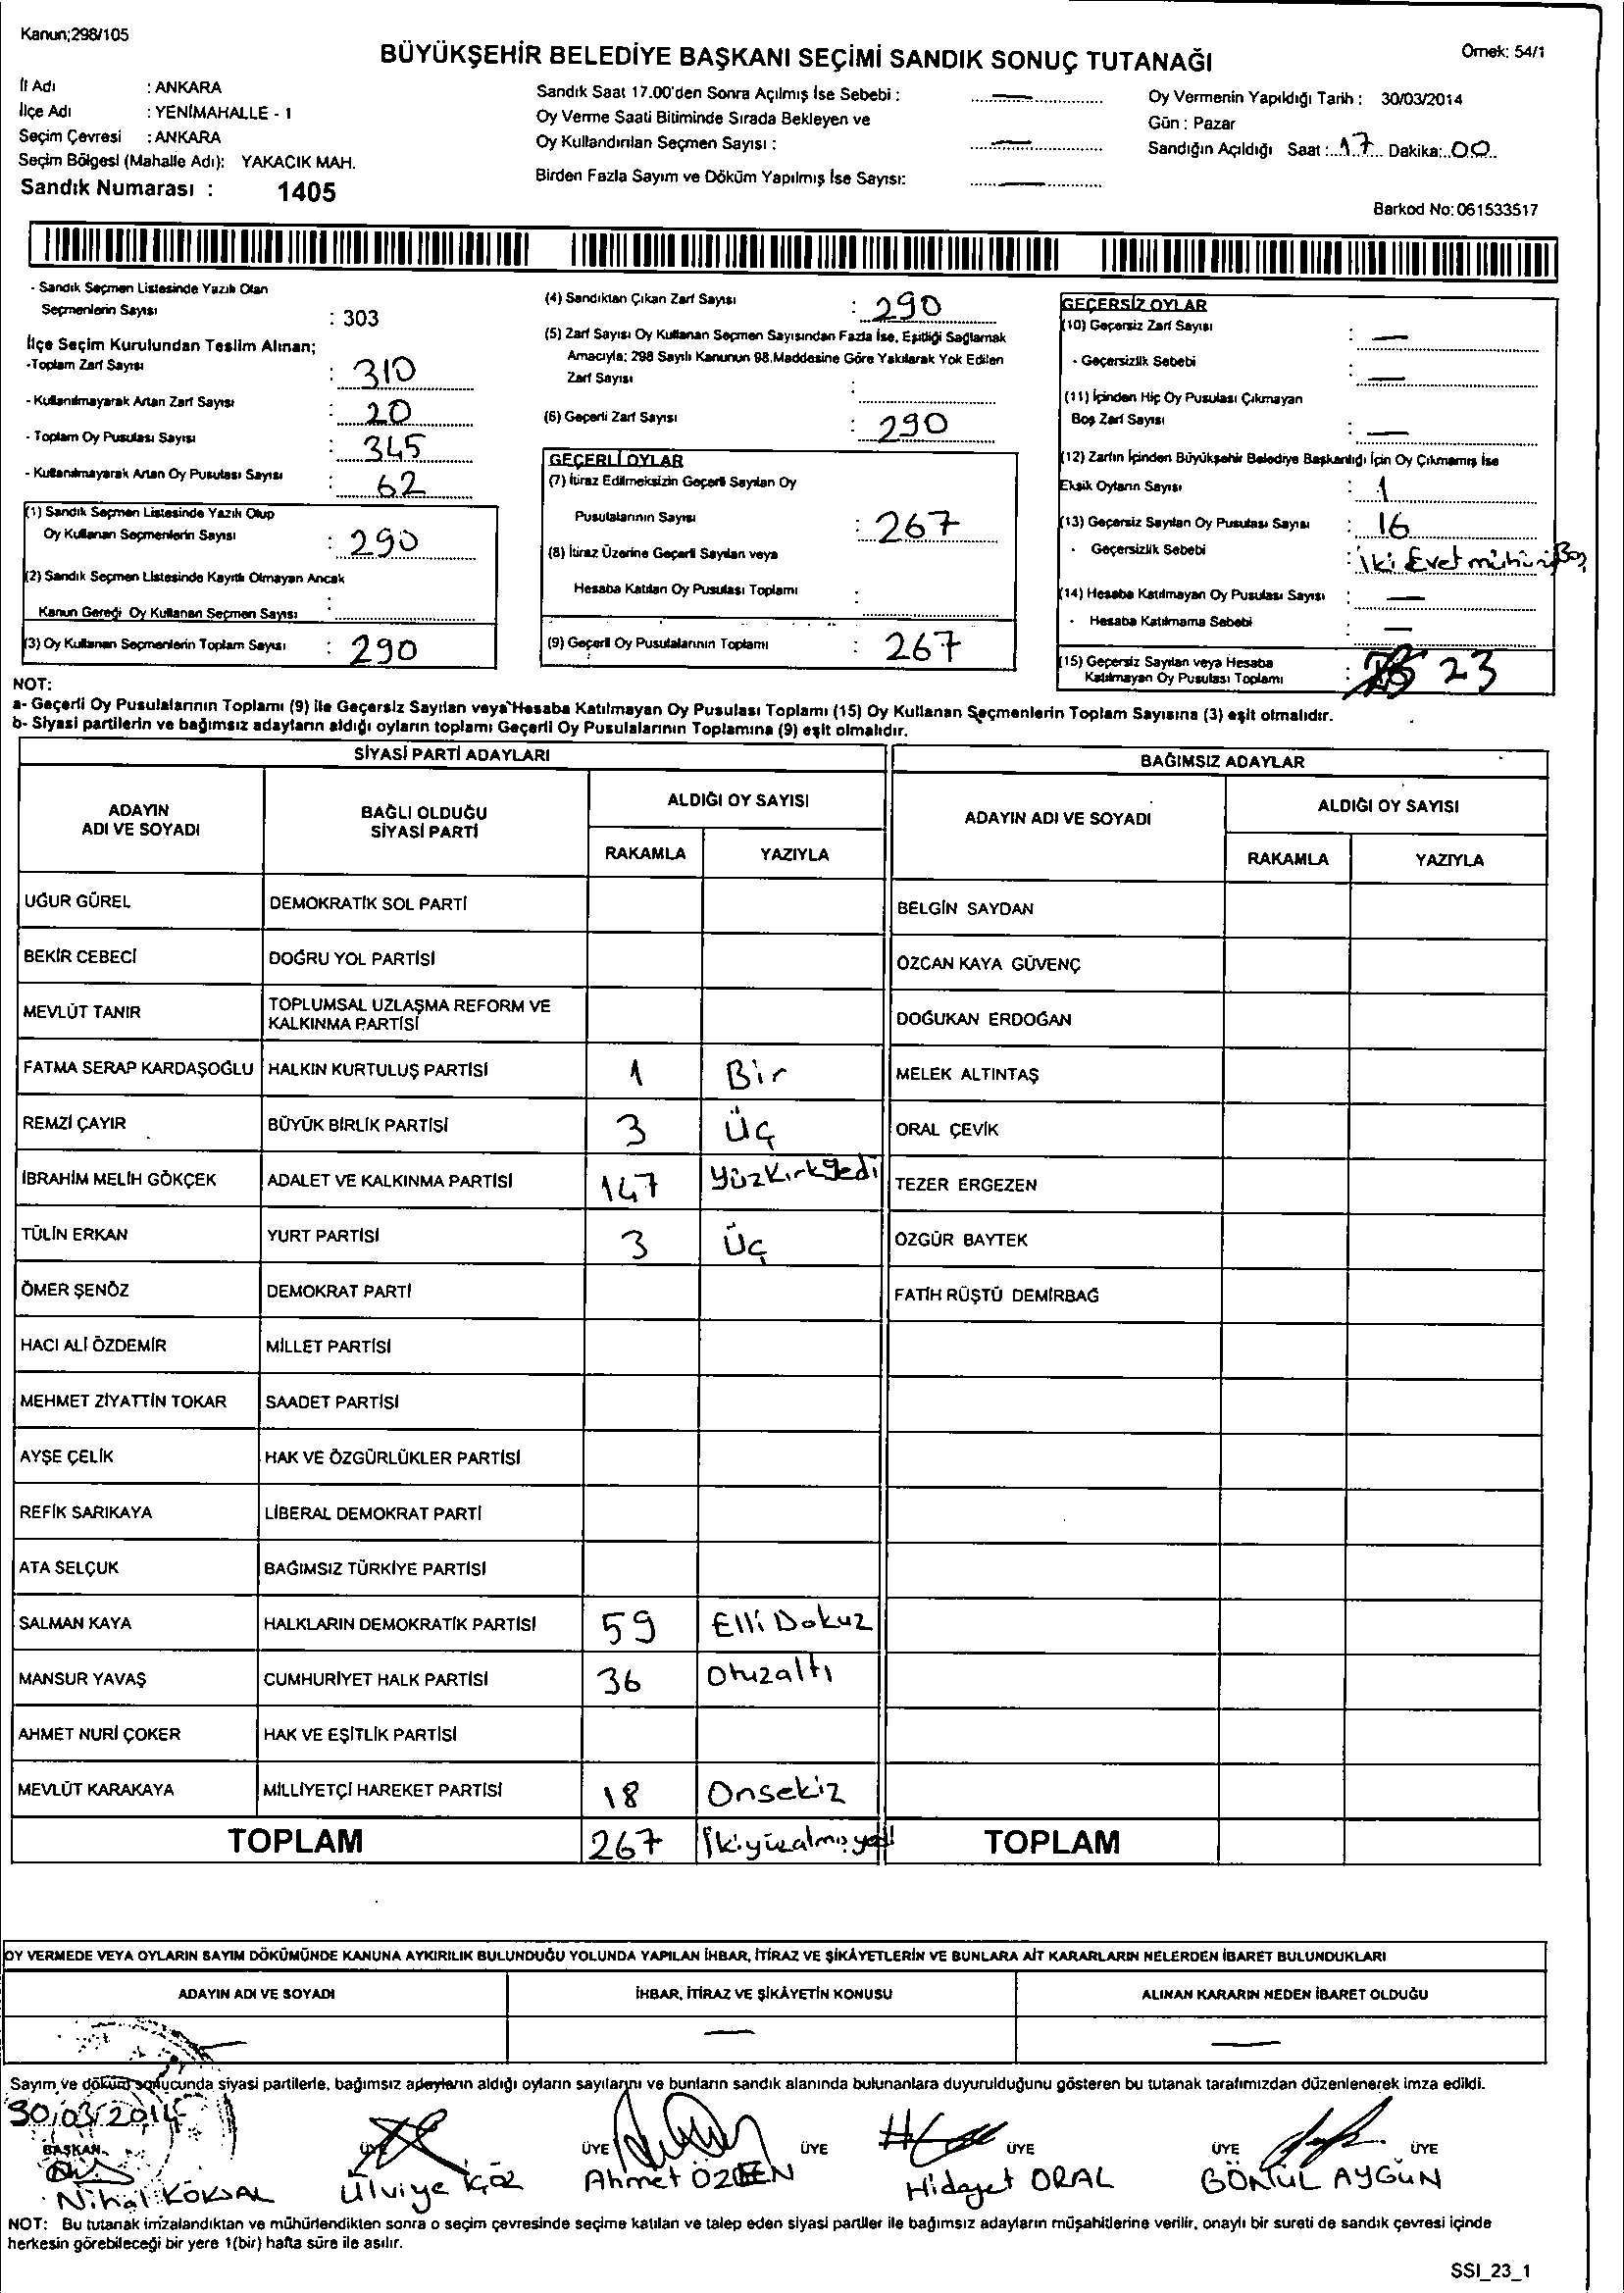 Kanun;298/105
BÜYÜKŞEHİR BELEDİYE BAŞKANI SEÇİMİ SANDIK SONUÇ TUTANAĞI
Örnek: 54/1
İl Adı : ANKARA
İlçe Adı : YENİMAHALLE - 1
Seçim Çevresi : ANKARA
Seçim Bölgesi (Mahalle Adı): YAKACIK MAH.
Sandık Numarası : 1405
Sandık Saat 17.00'den Sonra Açılmış İse Sebebi : —
Oy Verme Saati Bitiminde Sırada Bekleyen ve
Oy Kullandırılan Seçmen Sayısı : —
Birden Fazla Sayım ve Döküm Yapılmış İse Sayısı: —
Oy Vermenin Yapıldığı Tarih : 30/03/2014
Gün : Pazar
Sandığın Açıldığı Saat : 17 Dakika: 00
Barkod No: 061533517
- Sandık Seçmen Listesinde Yazılı Olan
Seçmenlerin Sayısı : 303
İlçe Seçim Kurulundan Teslim Alınan;
-Toplam Zarf Sayısı : 310
- Kullanılmayarak Artan Zarf Sayısı : 20
- Toplam Oy Pusulası Sayısı : 345
- Kullanılmayarak Artan Oy Pusulası Sayısı : 62
(1) Sandık Seçmen Listesinde Yazılı Olup
Oy Kullanan Seçmenlerin Sayısı : 290
(2) Sandık Seçmen Listesinde Kayıtlı Olmayan Ancak
Kanun Gereği Oy Kullanan Seçmen Sayısı :
(3) Oy Kullanan Seçmenlerin Toplam Sayısı : 290
(4) Sandıktan Çıkan Zarf Sayısı : 290
(5) Zarf Sayısı Oy Kullanan Seçmen Sayısından Fazla İse, Eşitliği Sağlamak
Amacıyla; 298 Sayılı Kanunun 98.Maddesine Göre Yakılarak Yok Edilen
Zarf Sayısı :
(6) Geçerli Zarf Sayısı : 290
GEÇERLİ OYLAR
(7) İtiraz Edilmeksizin Geçerli Sayılan Oy
Pusulalarının Sayısı : 267
(8) İtiraz Üzerine Geçerli Sayılan veya
Hesaba Katılan Oy Pusulası Toplamı :
(9) Geçerli Oy Pusulalarının Toplamı : 267
GEÇERSİZ OYLAR
(10) Geçersiz Zarf Sayısı : —
- Geçersizlik Sebebi : —
(11) İçinden Hiç Oy Pusulası Çıkmayan
Boş Zarf Sayısı : —
(12) Zarfın İçinden Büyükşehir Belediye Başkanlığı İçin Oy Çıkmamış İse
Eksik Oyların Sayısı : 1
(13) Geçersiz Sayılan Oy Pusulası Sayısı : 16
- Geçersizlik Sebebi : İki Evet mühürü Boş
(14) Hesaba Katılmayan Oy Pusulası Sayısı : —
- Hesaba Katılmama Sebebi : —
(15) Geçersiz Sayılan veya Hesaba
Katılmayan Oy Pusulası Toplamı : 23
NOT:
a- Geçerli Oy Pusulalarının Toplamı (9) ile Geçersiz Sayılan veya Hesaba Katılmayan Oy Pusulası Toplamı (15) Oy Kullanan Seçmenlerin Toplam Sayısına (3) eşit olmalıdır.
b- Siyasi partilerin ve bağımsız adayların aldığı oyların toplamı Geçerli Oy Pusulalarının Toplamına (9) eşit olmalıdır.
SİYASİ PARTİ ADAYLARI
BAĞIMSIZ ADAYLAR
ADAYIN ADI VE SOYADI
BAĞLI OLDUĞU SİYASİ PARTİ
ALDIĞI OY SAYISI
RAKAMLA YAZIYLA
ADAYIN ADI VE SOYADI
ALDIĞI OY SAYISI
RAKAMLA YAZIYLA
UĞUR GÜREL DEMOKRATİK SOL PARTİ BELGİN SAYDAN
BEKİR CEBECİ DOĞRU YOL PARTİSİ ÖZCAN KAYA GÜVENÇ
MEVLÜT TANIR TOPLUMSAL UZLAŞMA REFORM VE KALKINMA PARTİSİ DOĞUKAN ERDOĞAN
FATMA SERAP KARDAŞOĞLU HALKIN KURTULUŞ PARTİSİ 1 Bir MELEK ALTINTAŞ
REMZİ ÇAYIR BÜYÜK BİRLİK PARTİSİ 3 Üç ORAL ÇEVİK
İBRAHİM MELİH GÖKÇEK ADALET VE KALKINMA PARTİSİ 147 Yüzkırkyedi TEZER ERGEZEN
TÜLİN ERKAN YURT PARTİSİ 3 Üç ÖZGÜR BAYTEK
ÖMER ŞENÖZ DEMOKRAT PARTİ FATİH RÜŞTÜ DEMİRBAĞ
HACI ALİ ÖZDEMİR MİLLET PARTİSİ
MEHMET ZİYATTİN TOKAR SAADET PARTİSİ
AYŞE ÇELİK HAK VE ÖZGÜRLÜKLER PARTİSİ
REFİK SARIKAYA LİBERAL DEMOKRAT PARTİ
ATA SELÇUK BAĞIMSIZ TÜRKİYE PARTİSİ
SALMAN KAYA HALKLARIN DEMOKRATİK PARTİSİ 59 Elli Dokuz
MANSUR YAVAŞ CUMHURİYET HALK PARTİSİ 36 Otuzaltı
AHMET NURİ ÇOKER HAK VE EŞİTLİK PARTİSİ
MEVLÜT KARAKAYA MİLLİYETÇİ HAREKET PARTİSİ 18 Onsekiz
TOPLAM 267 TOPLAM
OY VERMEDE VEYA OYLARIN SAYIM DÖKÜMÜNDE KANUNA AYKIRILIK BULUNDUĞU YOLUNDA YAPILAN İHBAR, İTİRAZ VE ŞİKÂYETLERİN VE BUNLARA AİT KARARLARIN NELERDEN İBARET BULUNDUKLARI
ADAYIN ADI VE SOYADI İHBAR, İTİRAZ VE ŞİKÂYETİN KONUSU ALINAN KARARIN NEDEN İBARET OLDUĞU
— — —
Sayım ve döküm sonucunda siyasi partilerle, bağımsız adayların aldığı oyların sayılarını ve bunların sandık alanında bulunanlara duyurulduğunu gösteren bu tutanak tarafımızdan düzenlenerek imza edildi.
30/03/2014
BAŞKAN ÜYE ÜYE ÜYE ÜYE ÜYE ÜYE
Nihal KÖKSAL Ulviye Ahmet ÖZDEN Hidayet ORAL GÖNÜL AYGÜN
NOT: Bu tutanak imzalandıktan ve mühürlendikten sonra o seçim çevresinde seçime katılan ve talep eden siyasi partiler ile bağımsız adayların müşahitlerine verilir, onaylı bir sureti de sandık çevresi içinde
herkesin görebileceği bir yere 1(bir) hafta süre ile asılır.
SSI_23_1